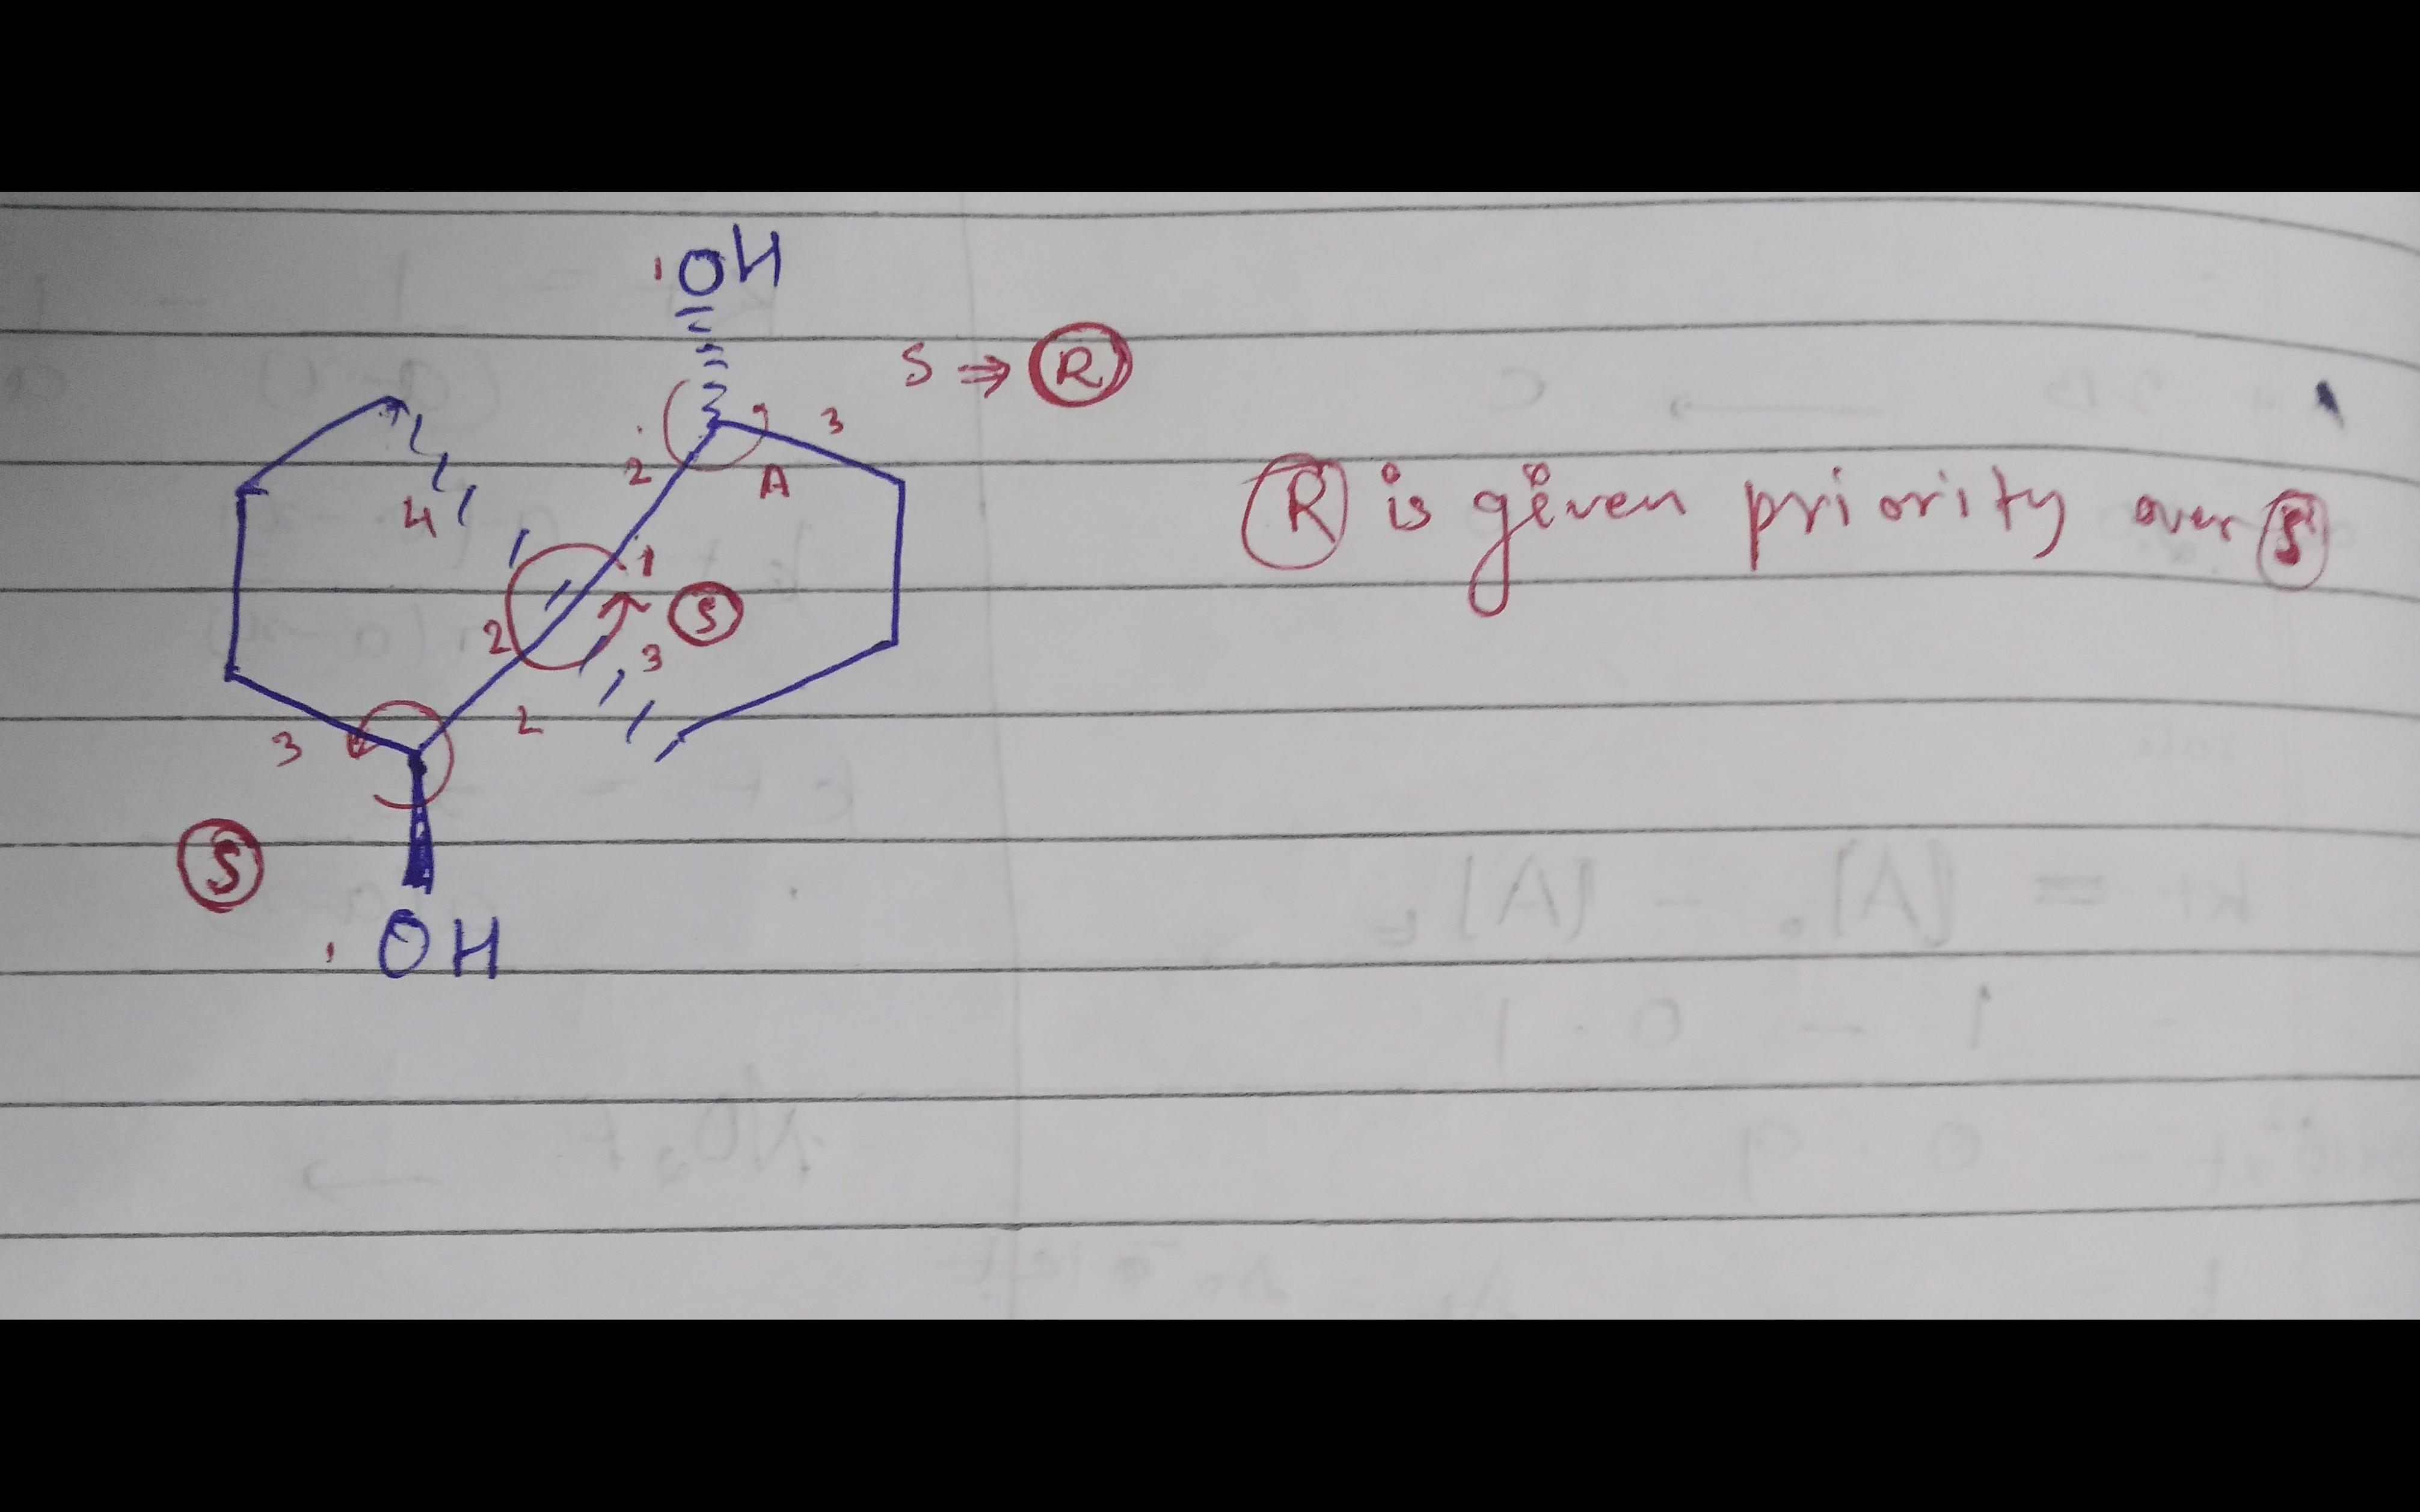 1 OH
S ⇒ R
2 3
A
4
R is given priority over S
1
S
2 3
2
3
S
1 OH